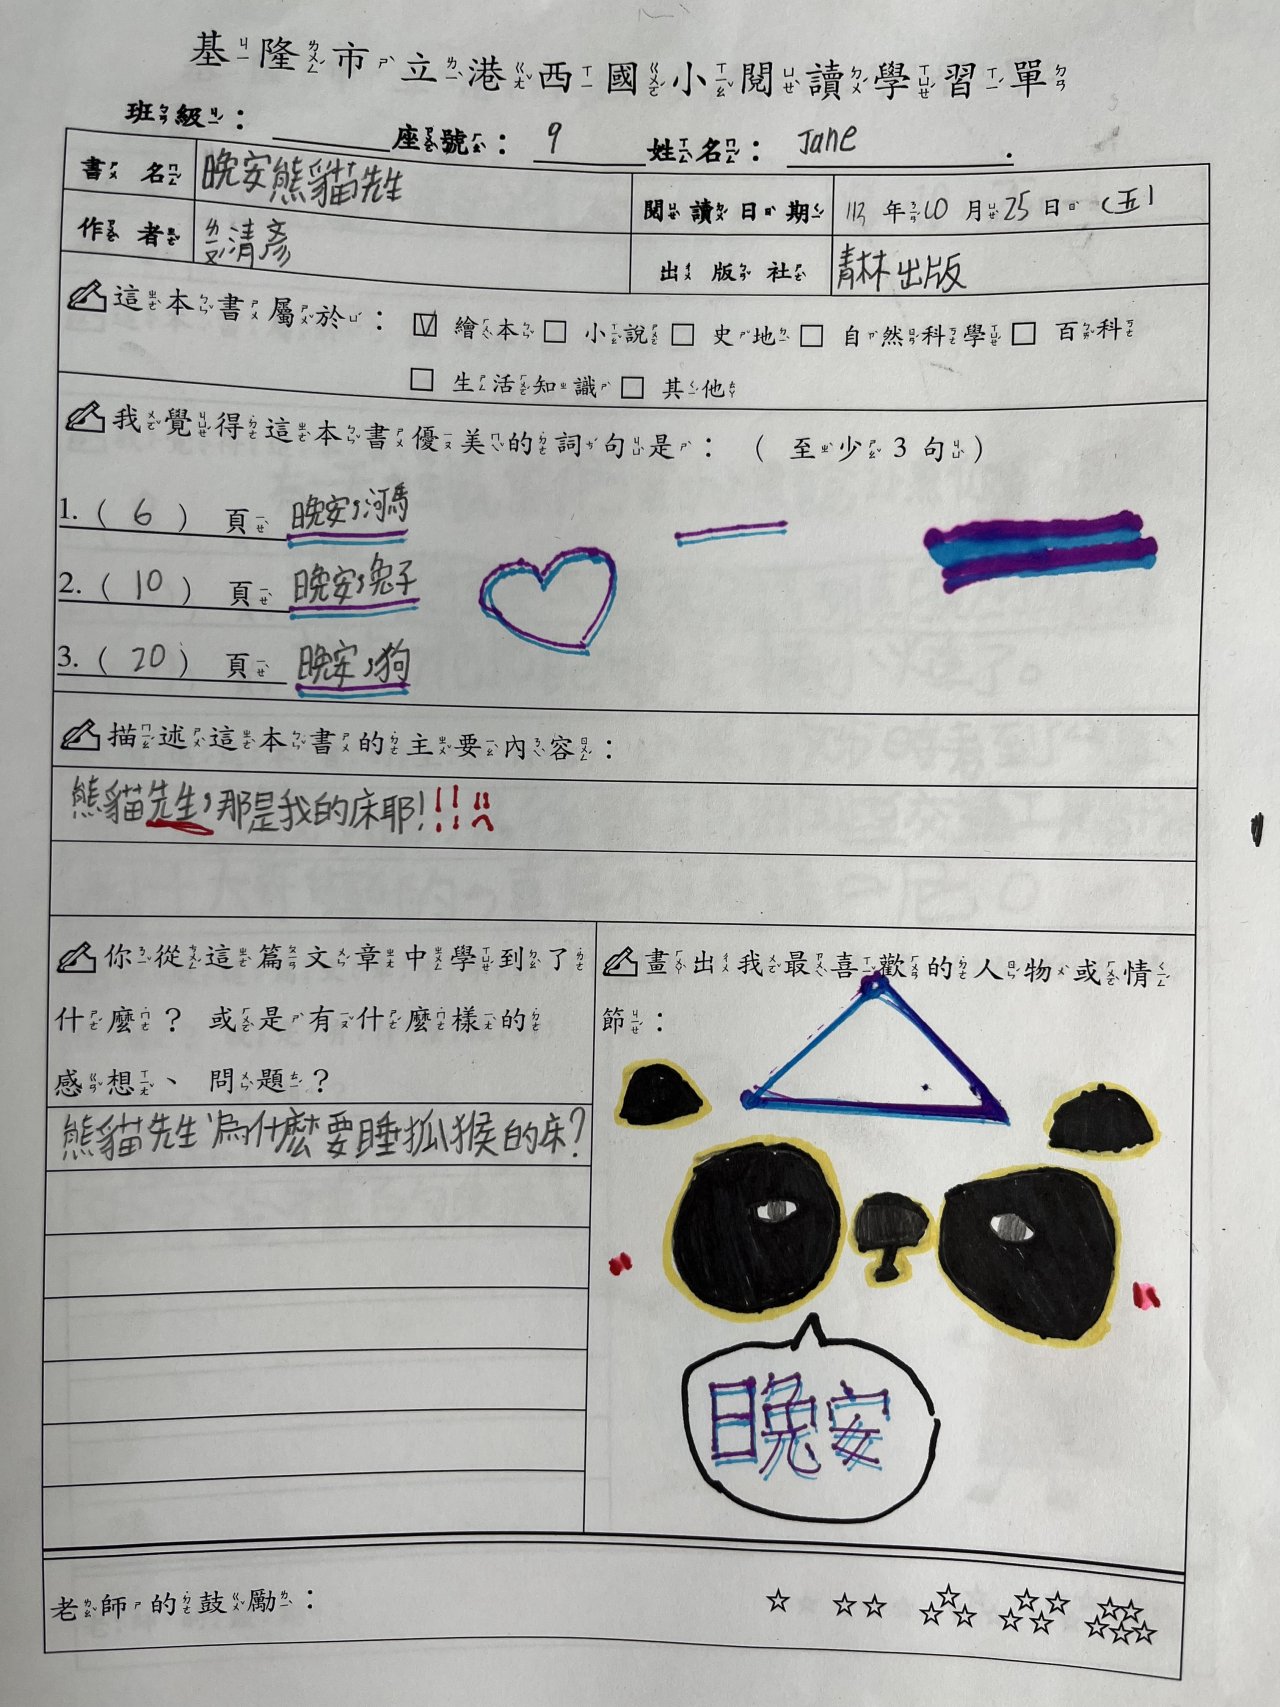 基隆市立港西國小閱讀學習單
班級： 座號：9 姓名：Jane
書名 晚安熊貓先生
閱讀日期 113年10月25日(五)
作者 ㄆㄥˊ清彥
出版社 青林出版
這本書屬於：☑繪本□小說□史地□自然科學□百科
□生活知識□其他
我覺得這本書優美的詞句是：（至少3句）
1.（6）頁 晚安，河馬
2.（10）頁 晚安，兔子
3.（20）頁 晚安，狗
描述這本書的主要內容：
熊貓先生，那是我的床耶！!!!!
你從這篇文章中學到了
什麼？或是有什麼樣的
感想、問題？
熊貓先生為什麼要睡狐猴的床？
畫出我最喜歡的人物或情
節：
晚安
老師的鼓勵：☆ ☆☆ ☆☆☆ ☆☆☆☆ ☆☆☆☆☆